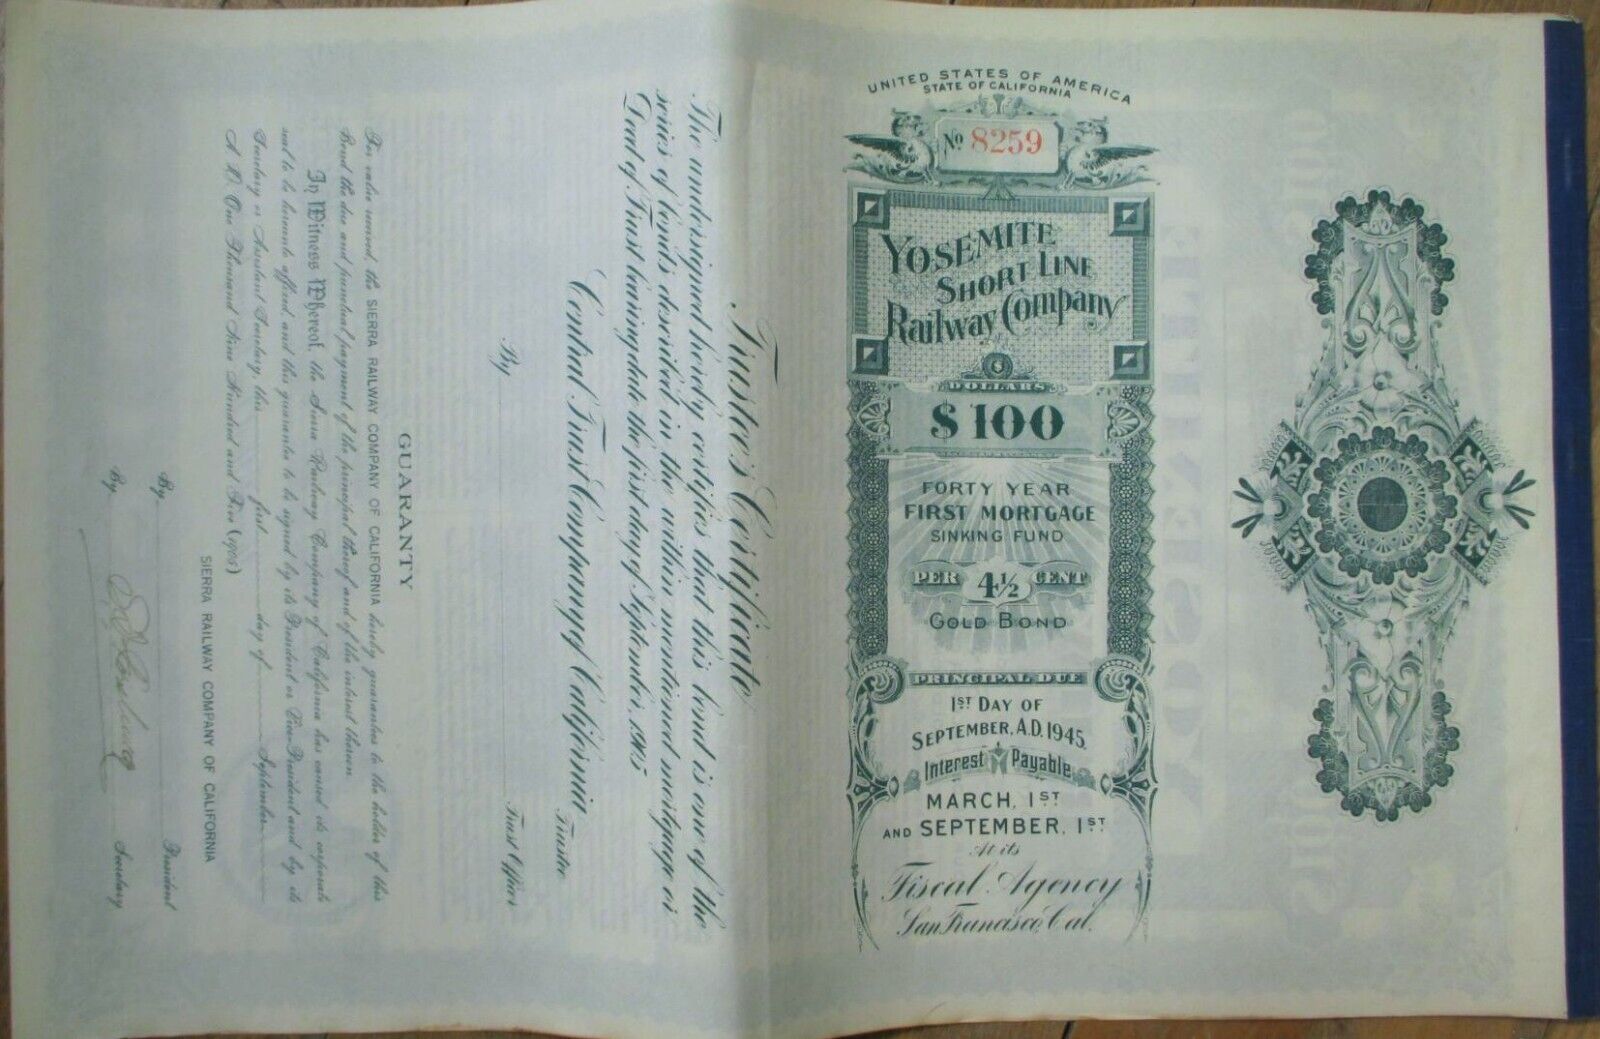 UNITED STATES OF AMERICA
STATE OF CALIFORNIA
No 8259
YOSEMITE
SHORT LINE
Railway Company
DOLLARS
$100
FORTY YEAR
FIRST MORTGAGE
SINKING FUND
PER 4½ CENT
GOLD BOND
PRINCIPAL DUE
1ST DAY OF
SEPTEMBER, A.D. 1945.
Interest Payable
MARCH, 1ST
AND SEPTEMBER, 1ST
At its
Fiscal Agency
San Francisco, Cal.
Trustee's Certificate
The undersigned hereby certifies that this bond is one of the
series of bonds described in the within mentioned mortgage or
Deed of Trust bearing date the first day of September, 1905
Central Trust Company of California
Trustee
By Trust Officer
GUARANTY
For value received, the SIERRA RAILWAY COMPANY OF CALIFORNIA hereby guarantees to the holder of this
Bond the due and punctual payment of the principal thereof and of the interest thereon.
In Witness Whereof, the Sierra Railway Company of California has caused its corporate
seal to be hereunto affixed, and this guarantee to be signed by its President or Vice-President and by its
Secretary or Assistant Secretary, this first day of September
A.D. One Thousand Nine Hundred and Five (1905)
SIERRA RAILWAY COMPANY OF CALIFORNIA
By President
By Secretary